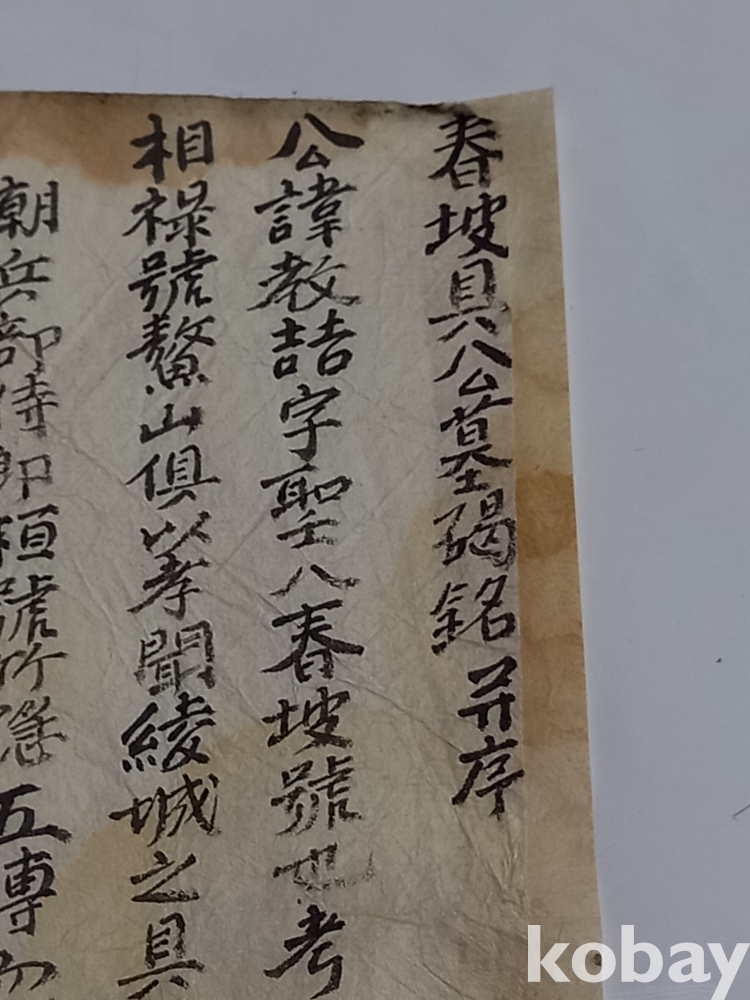 春坡具公墓碣銘 并序
公諱教喆字聖八春坡號也考
相祿號鰲山俱以孝聞綾城之具
朝兵部侍郎號竹隱五傳
kobay